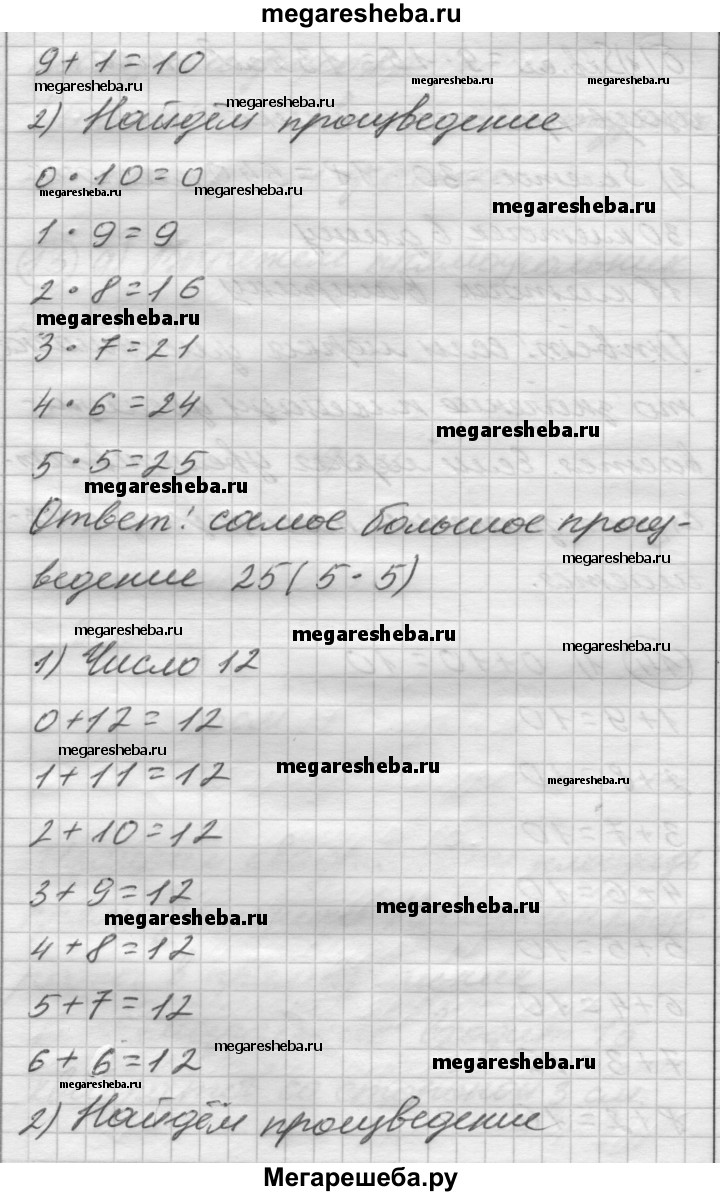 megaresheba.ru
9+1=10
megaresheba.ru megaresheba.ru megaresheba.ru
megaresheba.ru
2) Найдём произведение
0·10=0
megaresheba.ru megaresheba.ru
megaresheba.ru
1·9=9
2·8=16
megaresheba.ru
3·7=21
4·6=24
megaresheba.ru
5·5=25
megaresheba.ru
Ответ: самое большое произ-
megaresheba.ru
ведение 25(5·5)
megaresheba.ru megaresheba.ru
megaresheba.ru
1) Число 12
0+12=12
megaresheba.ru
megaresheba.ru
1+11=12
megaresheba.ru
2+10=12
3+9=12
megaresheba.ru
megaresheba.ru
4+8=12
5+7=12
megaresheba.ru
6+6=12
megaresheba.ru
megaresheba.ru
2) Найдём произведение
Мегарешеба.ру